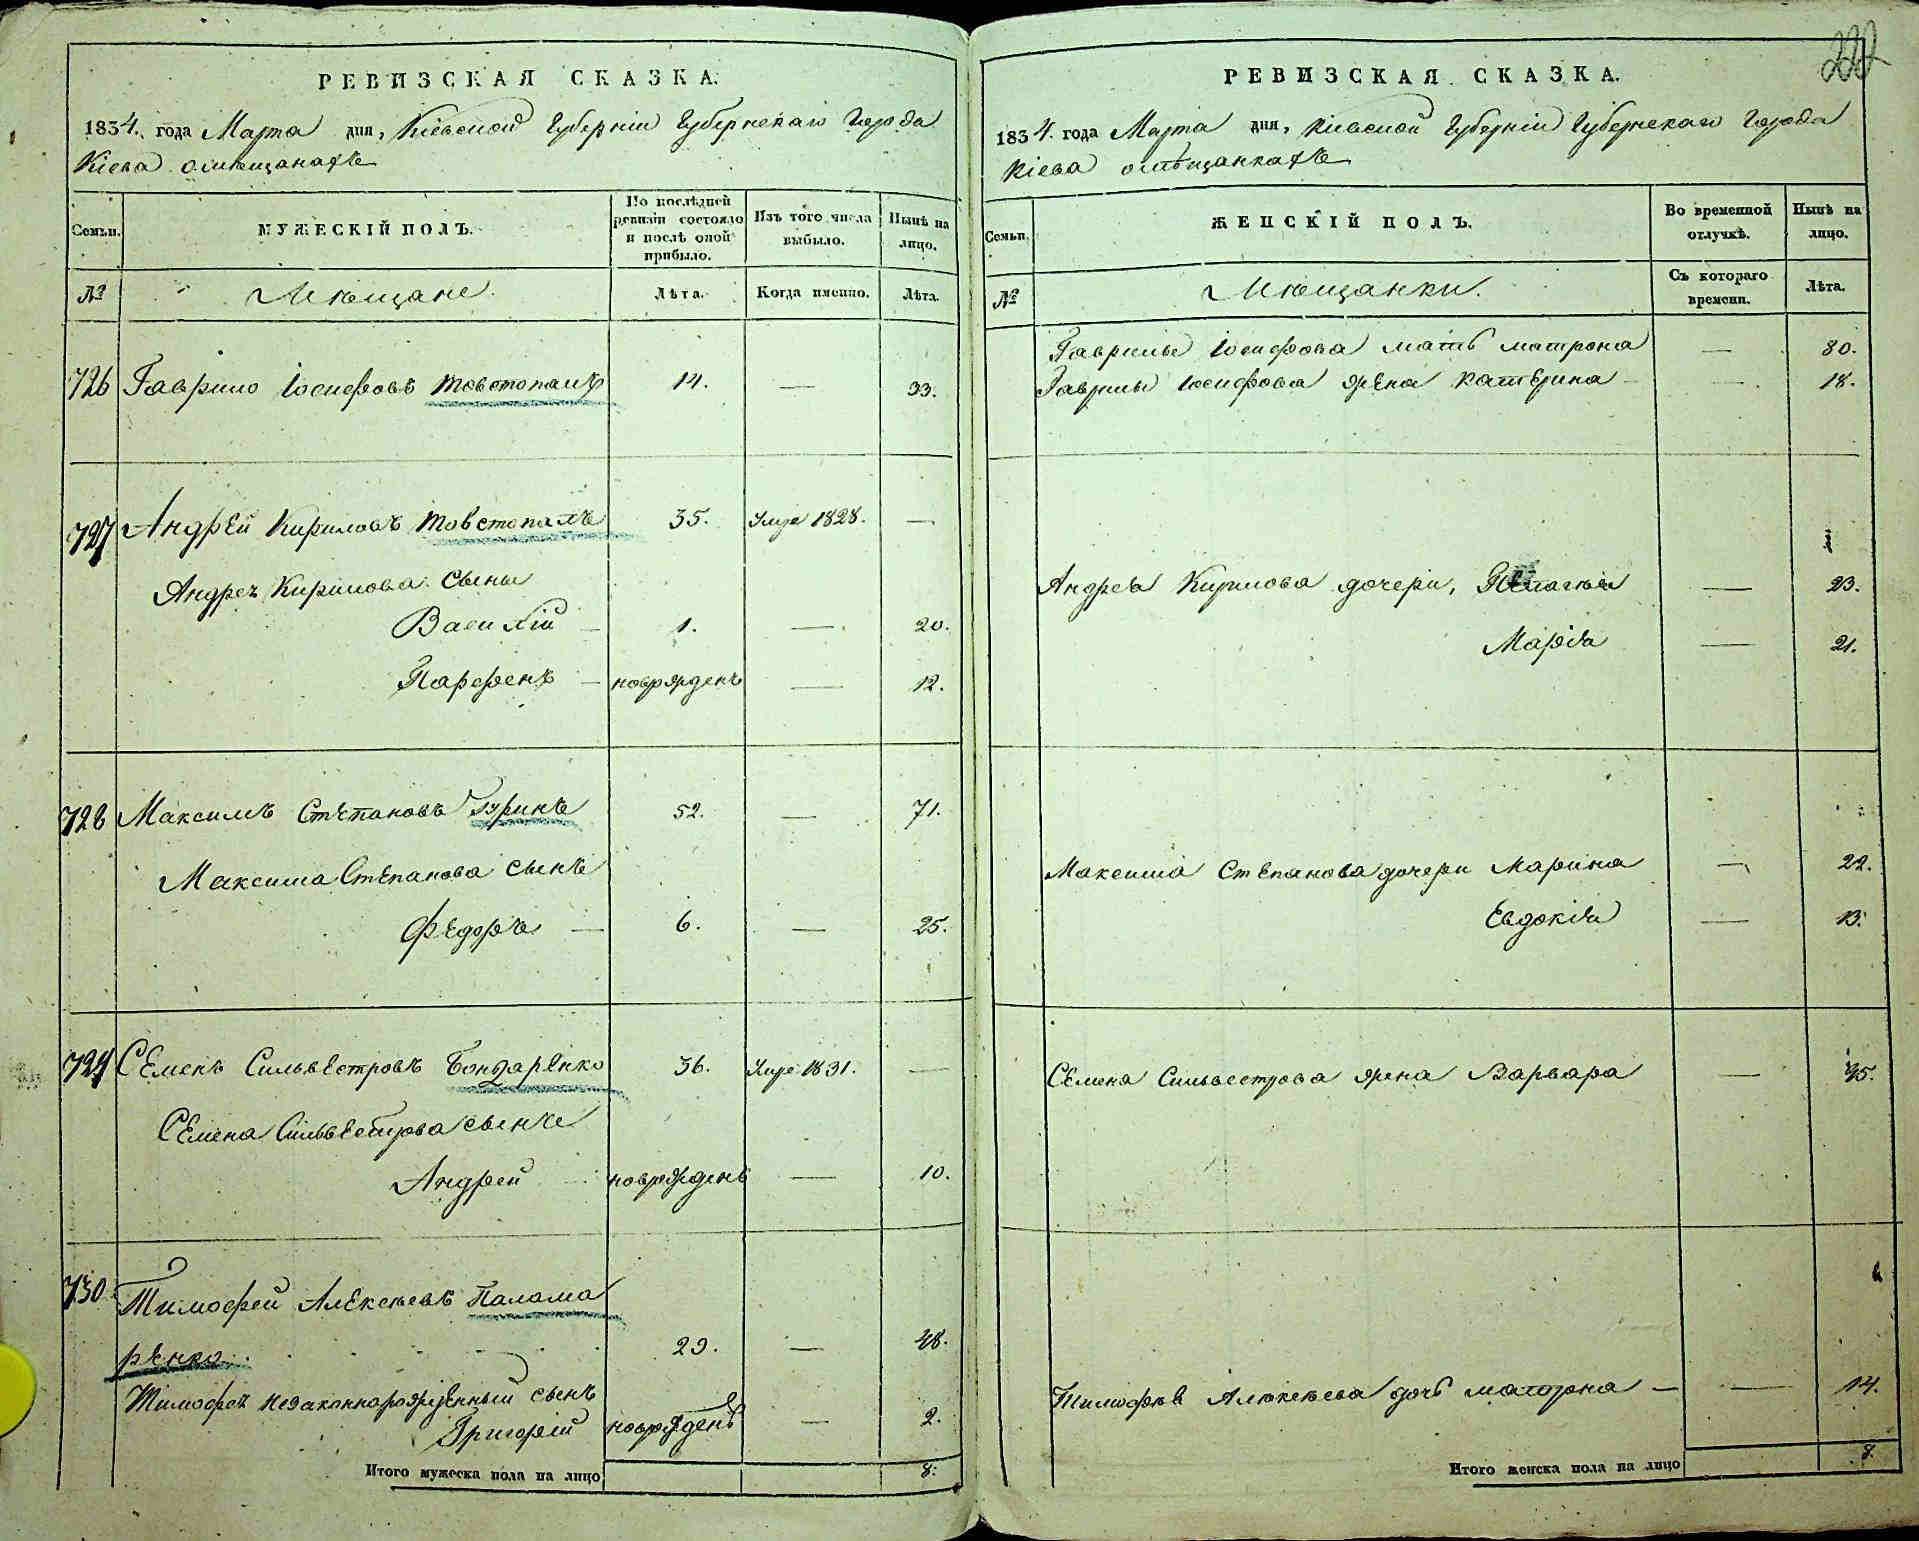 РЕВИЗСКАЯ СКАЗКА.
1834. года Марта дня, Кіевской Губерніи Губернскаго Города
Кіева о мѣщанахъ
Семьи.
МУЖЕСКІЙ ПОЛЪ.
По послѣдней ревизіи состояло и послѣ оной прибыло.
Изъ того числа выбыло.
Нынѣ на лицо.
№
Мѣщане.
Лѣта.
Когда именно.
Лѣта.
726 Гаврило Іосифовъ Товстопалъ 14. — 33.
727 Андрей Кириловъ Товстопалъ 35. Умре 1828. —
Андрея Кирилова сыны
Василій — 1. — 20.
Парфенъ — новрожденъ — 12.
728 Максимъ Степановъ Гуринъ 52. — 71.
Максима Степанова сынъ
Федоръ — 6. — 25.
729 Семенъ Сильвестровъ Бондаренко 36. Умре 1831. —
Семена Сильвестрова сынъ
Андрей новрожденъ — 10.
730 Тимофей Алексѣевъ Палама
ренко. 29. — 48.
Тимофея незаконнорожденный сынъ
Григорій новрожденъ — 2.
Итого мужеска пола на лицо 8.
222
РЕВИЗСКАЯ СКАЗКА.
1834. года Марта дня, Кіевской Губерніи Губернскаго Города
Кіева о мѣщанкахъ
Семьи.
ЖЕНСКІЙ ПОЛЪ.
Во временной отлучкѣ.
Нынѣ на лицо.
№
Мѣщанки.
Съ котораго времени.
Лѣта.
Гаврилы Іосифова мать Матрона — 80.
Гаврилы Іосифова жена Катерина — 18.
Андрея Кирилова дочери, Пелагія — 23.
Марія — 21.
Максима Степанова дочери Марина — 22.
Евдокія — 13.
Семена Сильвестрова жена Варвара — 35.
Тимофея Алексѣева дочь Матрона — — 14.
Итого женска пола на лицо 8.